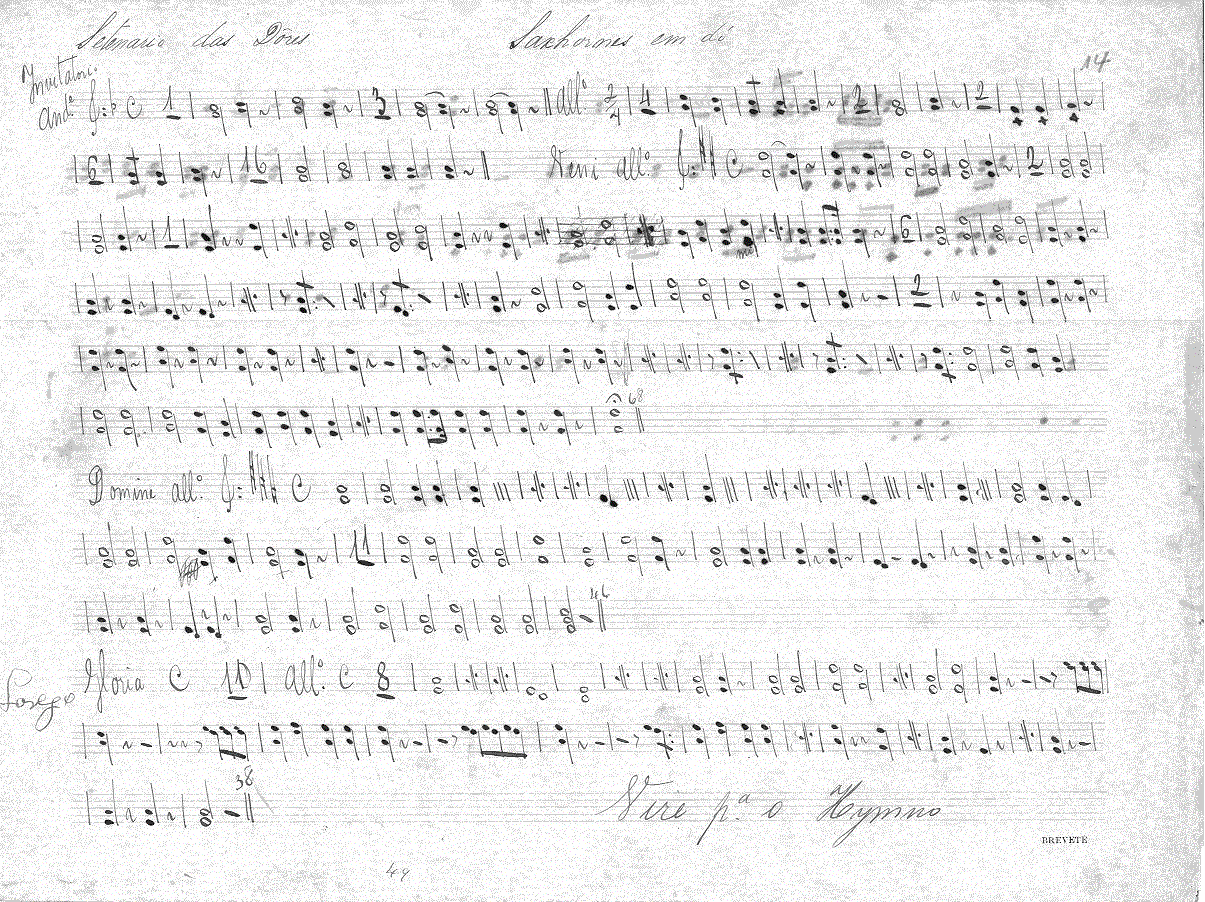 Setenario das Dôres Saxhornes em dó
14
Invitatori.
And.º C 1 3 all.º 2/4 4 2 2
6 16 Veni all.º C 2
1 6
mi
2
68
Domine all.º C
11
46
Gloria C 11 All.º C 8
38
Vire p.ª o Hymno
BREVETÉ